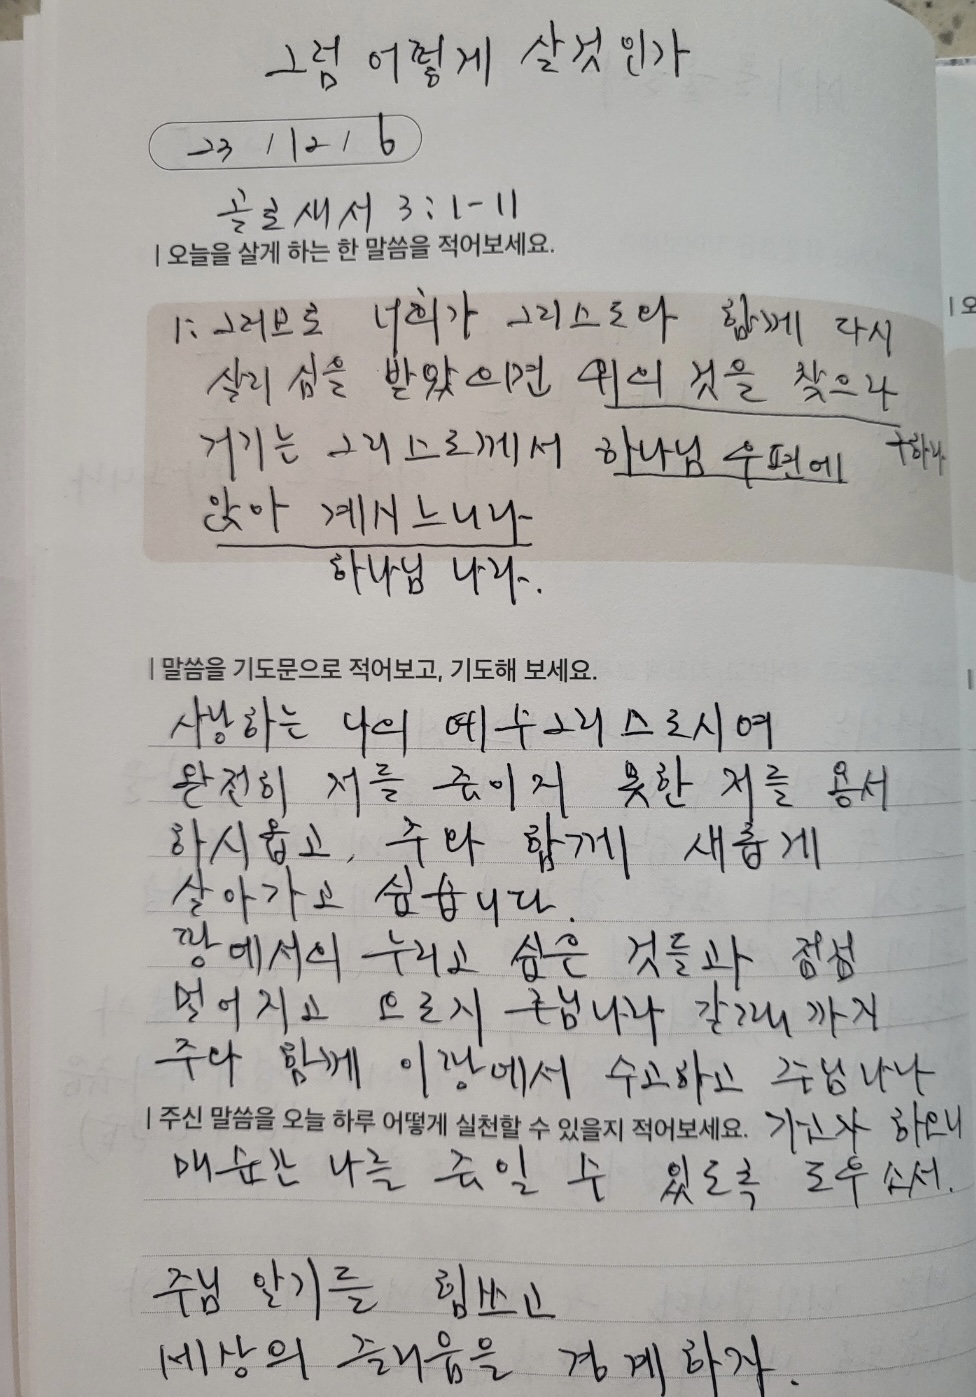 그럼 어떻게 살것인가
23 / 12 / 6
골로새서 3:1-11
| 오늘을 살게 하는 한 말씀을 적어보세요.
1: 그러므로 너희가 그리스도와 함께 다시
살리심을 받았으면 위의 것을 찾으라
구하라
거기는 그리스도께서 하나님 우편에
앉아 계시느니라
하나님 나라.
| 말씀을 기도문으로 적어보고, 기도해 보세요.
사랑하는 나의 예수그리스도시여
완전히 저를 죽이지 못한 저를 용서
하시옵고, 주와 함께 새롭게
살아가고 싶습니다.
땅에서의 누리고 싶은 것들과 점점
멀어지고 오로지 주님나라 갈때까지
주와 함께 이땅에서 수고하고 주님나라
가고자 하오니
| 주신 말씀을 오늘 하루 어떻게 실천할 수 있을지 적어보세요.
매순간 나를 죽일 수 있도록 도우소서.
주님 알기를 힘쓰고
세상의 즐거움을 경계하자.